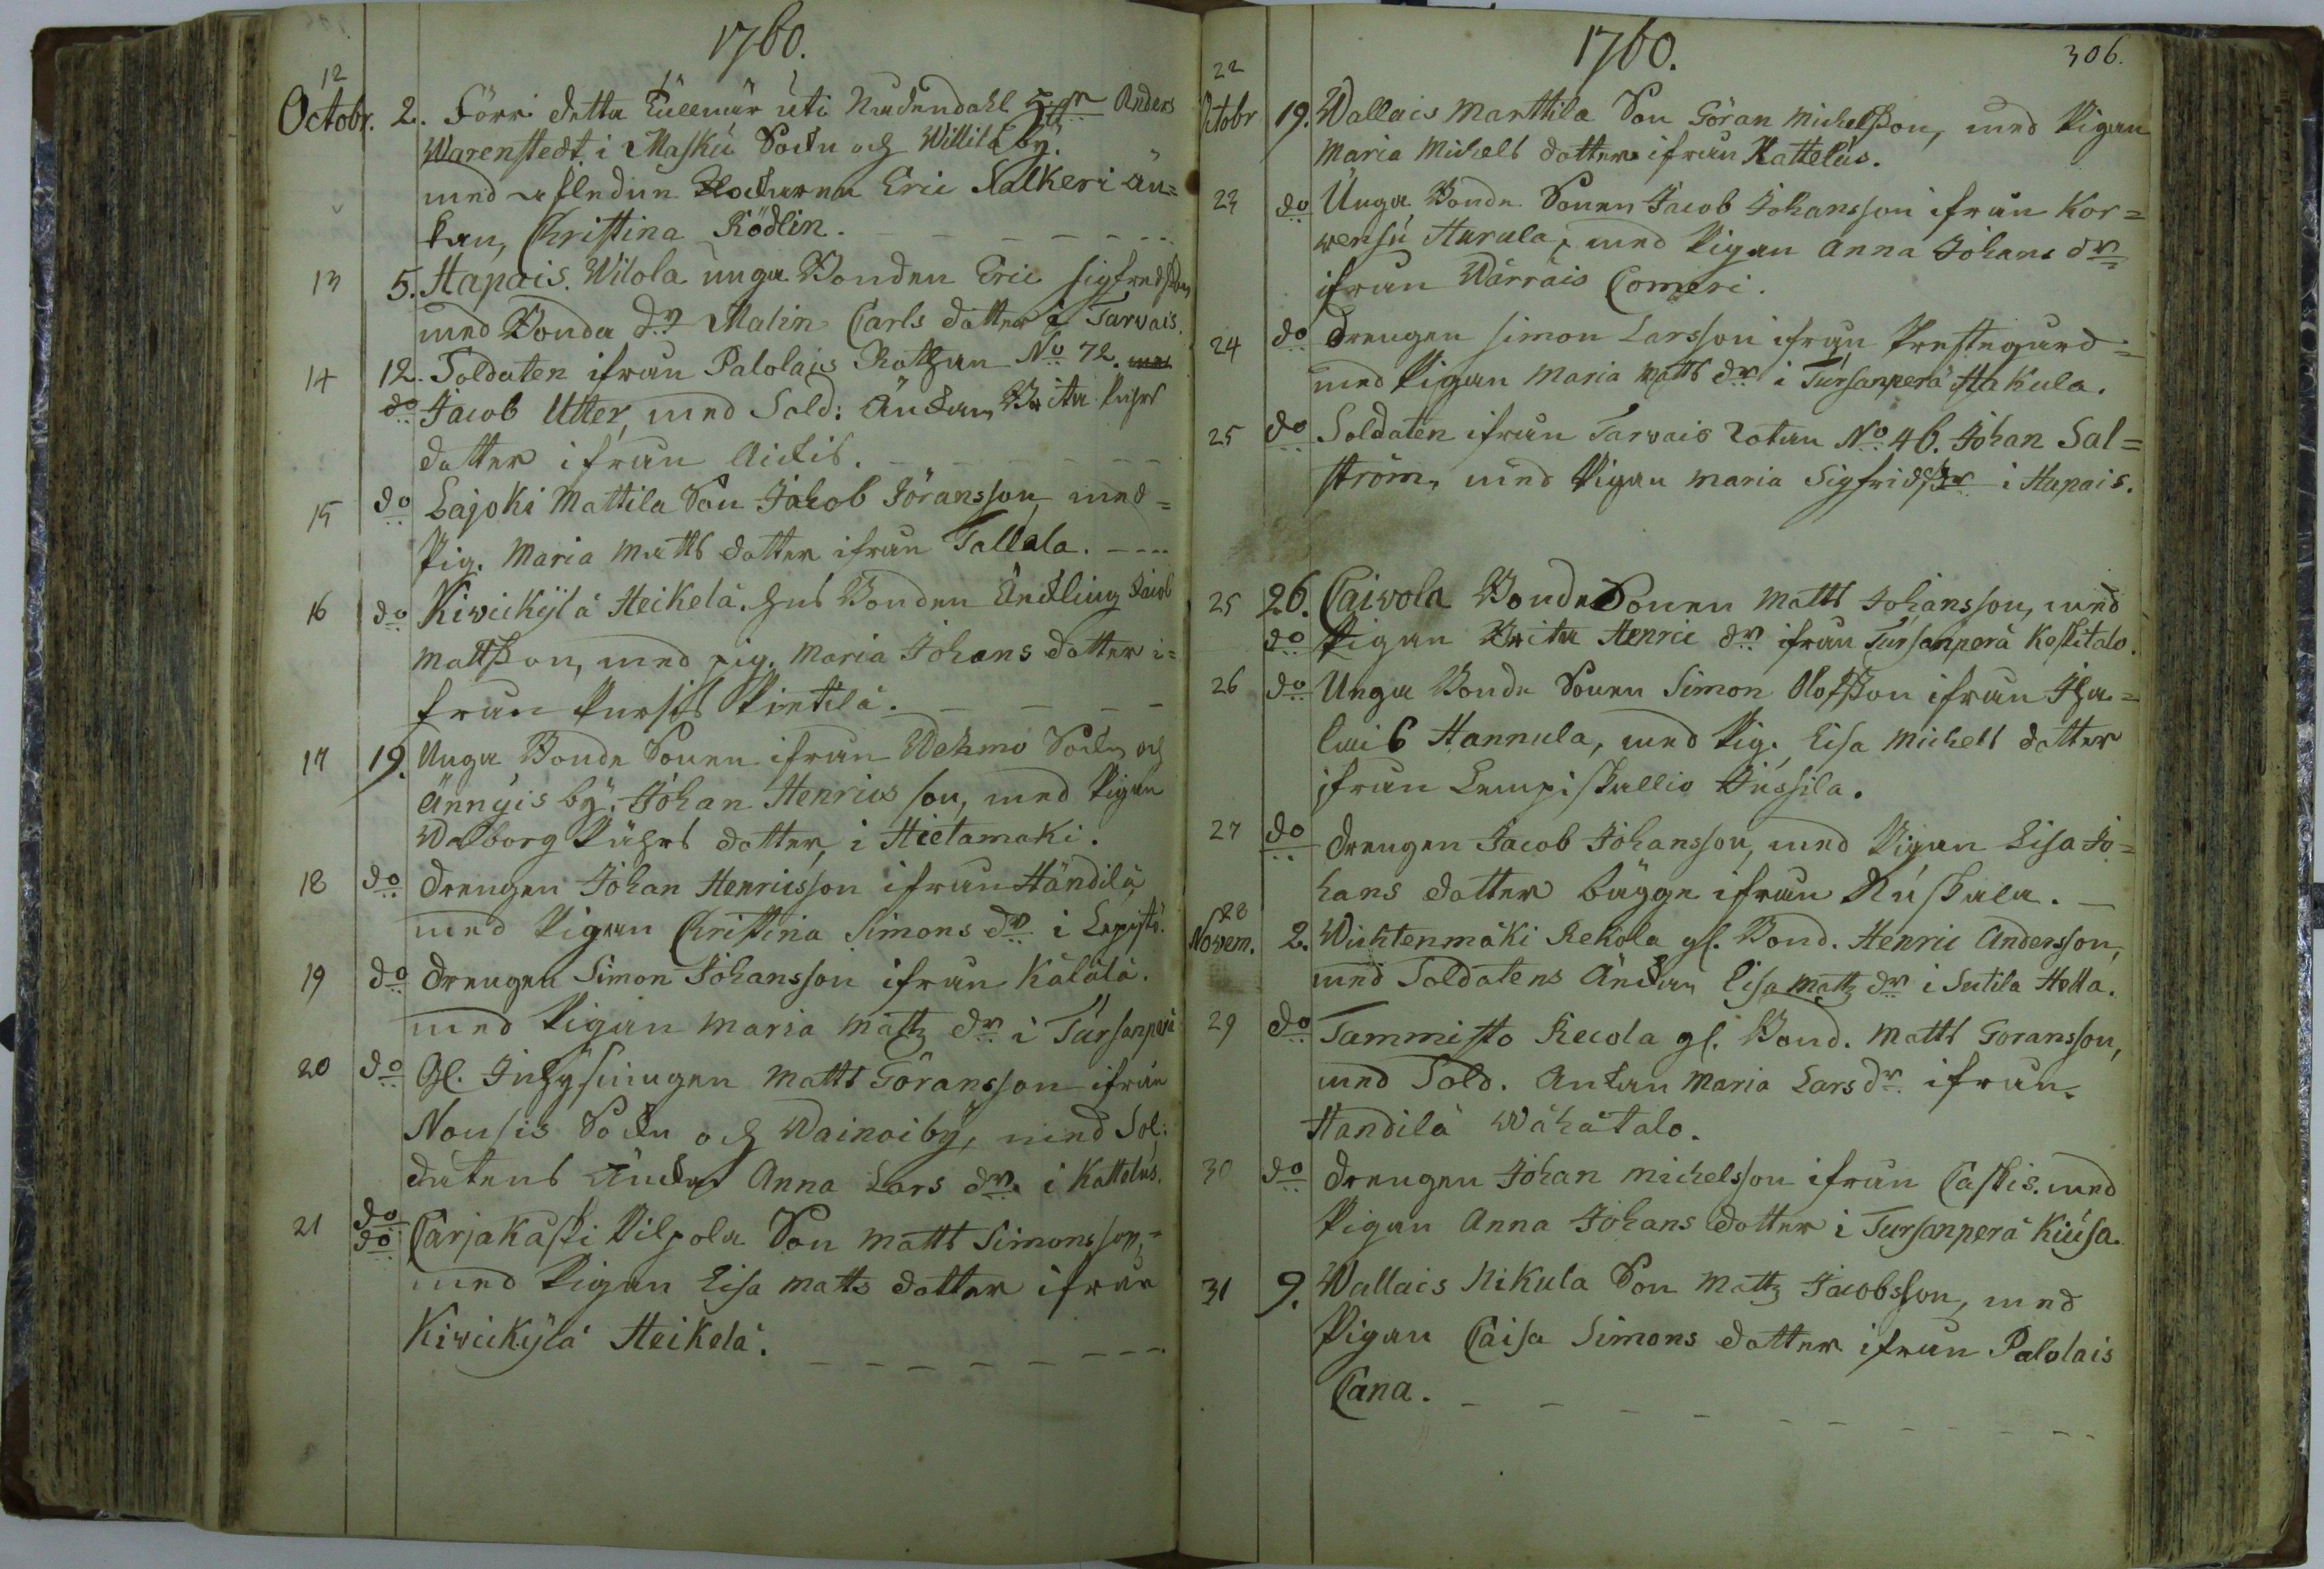 1760.
12
Octobr. 2. Förr detta Tullnär uti Nådendahl H:r Anders
Warenstedt i Masku Sockn och Willila by.
med aflednе Klockaren Eric Salkeri än=
kan, Christina Rödlin.
13 5. Hapais. Wilola unga Bonden Eric Sigfredsson
med Bonda d:r Malin Carls dotter i Tarvais.
14 12. Soldaten ifrån Palolais Rothan No 72.
do Jacob Utter, med Sold: Änkan Brita Påhls
dotter ifrån
15 do Lajoki Mattila Son Jacob Jöransson, med=
Pig. Maria Matts dotter ifrån Tallala.
16 do Kivickÿlä Heikelä. Gub Bonden Änkling Jacob
Mattsson, med pig. Maria Johans dotter i=
från Pursis Pintilä.
17 19. Unga Bonde Sonen ifrån Wehmo Sockn och
Ännyis bÿ. Johan Henrics son, med Pigan
Walborg Påhls dotter, i Hietamaki.
18 do Drengen Johan Henricsson ifrån Händilä
med Pigan Christina Simons dr i Lepistö.
19 do Drengen Simon Johansson ifrån Kälälä.
med Pigan Maria Matz dr i Tursanperä
20 do Gl. Inhÿsningen Matts Göransson ifrån
Nousis Sockn och Wainoibÿ, med Sol:
datens Änka Anna Lars dr. i Kattelus.
21 do
do Carjakaski Pilpola Son Matts Simonsson,=
med Pigan Lisa Matts dotter ifrån
Kivickÿlä Heikelä.
1760.
306.
22
Octobr 19. Wallais Marttila Son Göran Michelsson, med Pigan
Maria Michels dotter ifrån Kattelus.
23 do Unga Bonde Sonen Jacob Johansson ifrån Kor=
wensu Harula, med Pigan Anna Johans dr
ifrån Wärräis Comeri.
24 do Drengen Simon Larsson ifrån Prestegård=
med Pigan Maria Matts dr i Tursanperä Hakula.
25 do Soldaten ifrån Tarvais Rotan No 46. Johan Sal=
ström, med Pigan Maria Sigfrids dr i Hapais.
25 26. Caivola Bonde Sonen Matts Johansson, med
do Pigan Brita Henric dr ifrån Tursanperä Koskitalo.
26 do Unga Bonde Sonen Simon Olofsson ifrån Iha=
luis Hannula, med Pig. Lisa Michels dotter
ifrån Lempiskallio Jussila.
27 do Drengen Jacob Johansson, med Pigan Lisa Jo=
hans dotter bägge ifrån Ruskala.
28
Novem. 2. Wichtenmäki Rekola gl. Bond. Henric Andersson,
med Soldatens Änkan Lisa Matz dr i Sutila Hella.
29 do Tammisto Recola gl. Bond. Matts Göransson,
med Sold. Ankan Maria Lars dr ifrån
Handilä Wähätalo.
30 do Drengen Johan Michelsson ifrån Caskis. med
Pigan Anna Johans dotter i Tursanperä Kiusa.
31 9. Wallais Nikula Son Matz Jacobsson, med
Pigan Caisa Simons dotter ifrån Palolais
Cana.